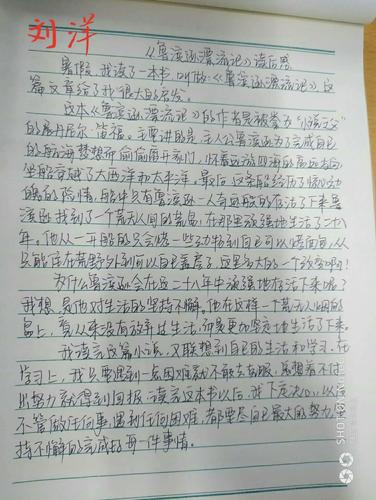 刘洋
《鲁滨逊漂流记》读后感
暑假,我读了一本书,叫做《鲁滨逊漂流记》,这
篇文章给了我很大的启发。
这本《鲁滨逊漂流记》的作者是被誉为“小说之父”
的丹尼尔·笛福。主要讲的是主人公鲁滨逊为了完成自己
的航海梦想而偷偷离开家门,怀着远游四海的高远志向
坐船穿越了大西洋和太平洋。最后这条船经历了惊心动
魄的险情,船中只有鲁滨逊一人奇迹般的存活了下来鲁
滨逊找到了一个荒无人烟的荒岛,在那里顽强地生活了二十八
年。他从一开始的只会
只能住在荒野外到可以自己盖房子,这是多大的一个改变啊!
为什么鲁滨逊会在这二十八年中顽强地存活下来呢?
我想是他对生活的坚持不懈。他在这样一个荒无人烟的
岛上,看从来没有放弃过生活,而是更加坚定地生活了下来。
我读完这篇小说,又联想到自己的生活和学习。在
学习上,我只要遇到一点困难就不敢去克服,总想着不付
出努力就得到回报。读完这本书以后,我下定决心,以后
不管做任何事,遇到任何困难,都要尽自己最大的努力,坚
持不懈的完成好每一件事情。